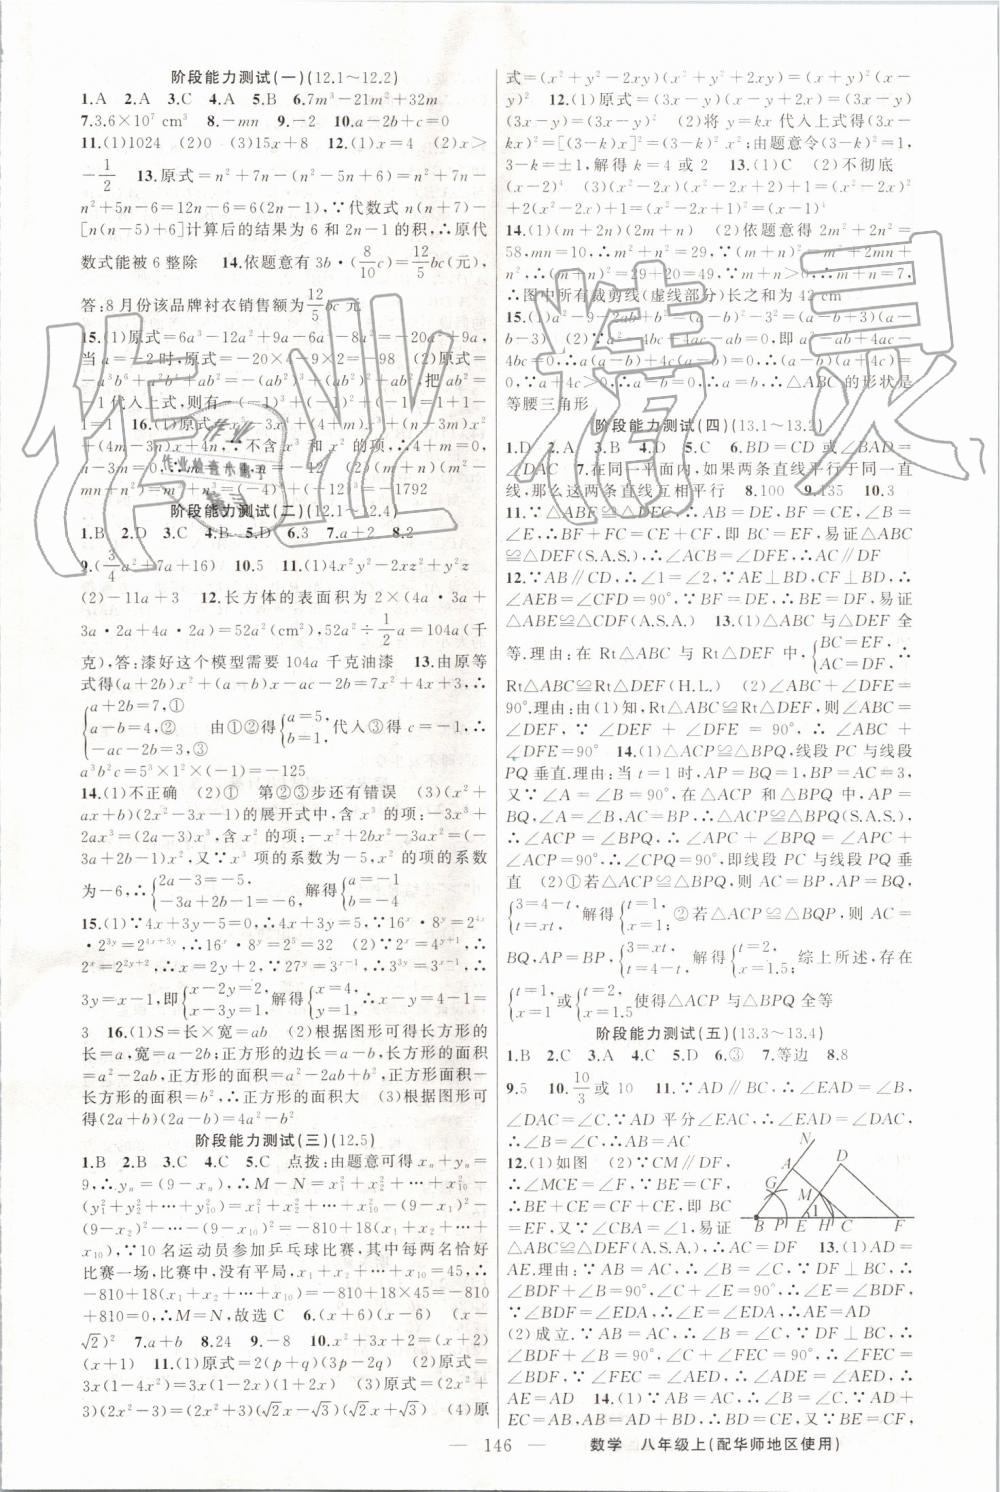 阶段能力测试(一)(12.1～12.2)
1.A 2.A 3.C 4.A 5.B 6.7m³－21m²＋32m
7.3.6×10⁷ cm³ 8.－mn 9.－2 10.a－2b＋c＝0
11.(1)1024 (2)0 (3)15x＋8 12.(1)x＝4 (2)x＞
－1/2 13.原式＝n²＋7n－(n²－5n＋6)＝n²＋7n－
n²＋5n－6＝12n－6＝6(2n－1),∵代数式 n(n＋7)－
[n(n－5)＋6]计算后的结果为 6 和 2n－1 的积,∴原代
数式能被 6 整除 14.依题意有 3b·(8/10 c)＝12/5 bc(元),
答:8 月份该品牌衬衣销售额为 12/5 bc 元
15.(1)原式＝6a³－12a²＋9a－6a³－8a²＝－20a²＋9a,
当 a＝－2 时,原式＝－20×4－9×2＝－98 (2)原式＝
－a³b⁶＋a²b⁴＋ab²＝－(ab²)³＋(ab²)²＋ab²,把 ab²＝
－1 代入上式,则有－(－1)³＋(－1)²＋(－1)＝1＋1－
1＝1
＋(4m－3n)x＋4n,∵不含 x³ 和 x² 的项,∴4＋m＝0,
阶段能力测试(二)(12.1～12.4)
1.B 2.D 3.C 4.B 5.D 6.3 7.a＋2 8.2
9.(3/4 a²＋7a＋16) 10.5 11.(1)4x²y²－2xz²＋y²z
(2)－11a＋3 12.长方体的表面积为 2×(4a·3a＋
3a·2a＋4a·2a)＝52a²(cm²),52a²÷1/2 a＝104a(千
克),答:漆好这个模型需要 104a 千克油漆 13.由原等
式得(a＋2b)x²＋(a－b)x－ac－2b＝7x²＋4x＋3,∴
{a＋2b＝7,① a－b＝4,② －ac－2b＝3,③ 由①②得{a＝5, b＝1, 代入③得 c＝－1,∴
a³b²c＝5³×1²×(－1)＝－125
14.(1)不正确 (2)① 第②③步还有错误 (3)(x²＋
ax＋b)(2x²－3x－1)的展开式中,含 x³ 的项:－3x³＋
2ax³＝(2a－3)x³,含 x² 的项:－x²＋2bx²－3ax²＝(－
3a＋2b－1)x²,又∵x³ 项的系数为－5,x² 的项的系数
为－6,∴{2a－3＝－5, －3a＋2b－1＝－6, 解得{a＝－1 b＝－4
15.(1)∵4x＋3y－5＝0,∴4x＋3y＝5,∵16ˣ·8ʸ＝2⁴ˣ
·2³ʸ＝2⁴ˣ⁺³ʸ,∴16ˣ·8ʸ＝2⁵＝32 (2)∵2ˣ＝4ʸ⁺¹,∴
2ˣ＝2²ʸ⁺²,∴x＝2y＋2,∵27ʸ＝3ˣ⁻¹,∴3³ʸ＝3ˣ⁻¹,∴
3y＝x－1,即{x－2y＝2, x－3y＝1, 解得{x＝4, y＝1, ∴x－y＝4－1＝
3 16.(1)S＝长×宽＝ab (2)根据图形可得长方形的
长＝a,宽＝a－2b;正方形的边长＝a－b,长方形的面积
＝a²－2ab,正方形的面积＝a²－2ab＋b²,∵正方形的
面积－长方形的面积＝b²,∴正方形的面积大 (3)根据图形可
得(2a＋b)(2a－b)＝4a²－b²
阶段能力测试(三)(12.5)
1.B 2.B 3.C 4.C 5.C 点拨:由题意可得 xₙ＋yₙ＝
9,∴yₙ＝(9－xₙ),∴M－N＝x₁²＋x₂²＋…＋x₁₀²－
(y₁²＋y₂²＋…＋y₁₀²)＝x₁²＋x₂²＋…＋x₁₀²－(9－x₁)²－
(9－x₂)²－…－(9－x₁₀)²＝－810＋18(x₁＋x₂＋…＋
x₁₀),∵10 名运动员参加乒乓球比赛,其中每两名恰好
比赛一场,没有平局,x₁＋x₂＋…＋x₁₀＝45,∴
－810＋18(x₁＋x₂＋…＋x₁₀)＝－810＋18×45＝－810
＋810＝0,∴M＝N,故选 C 6.(x＋6)(x－6) (x－
√2)² 7.a＋b 8.24 9.－8 10.x²＋3x＋2＝(x＋2)
(x＋1) 11.(1)原式＝2(p＋q)(3p－2q) (2)原式＝
3x(1－4x²)＝3x(1－2x)(1＋2x) (3)原式＝(2x²＋
3)(2x²－3)＝(2x²＋3)(√2x－√3)(√2x＋√3) (4)原
式＝(x²＋y²－2xy)(x²＋y²＋2xy)＝(x＋y)²(x－
y)² 12.(1)原式＝(3x－y)(3x－y)＝
(3x－y)² (2)将 y＝kx 代入上式得(3x－
kx)²＝[(3－k)x]²＝(3－k)²x²;由题意令(3－k)²＝1,
3－k＝±1,解得 k＝4 或 2 13.(1)C (2)不彻底
(x－2)⁴ (3)(x²－2x)(x²－2x＋2)＋1＝(x²－2x)²
＋2(x²－2x)＋1＝(x²－2x＋1)²＝(x－1)⁴
14.(1)(m＋2n)(2m＋n) (2)依题意得 2m²＋2n²＝
58,mn＝10,∴m²＋n²＝29,∵(m＋n)²＝m²＋2mn＋
n²,∴(m＋n)²＝29＋20＝49,∵m＋n＞0,∴m＋n＝7,
∴图中所有裁剪线(虚线部分)长之和为 42 cm
等腰三角形
阶段能力测试(四)(13.1～13.2)
1.D 2.A 3.B 4.D 5.C 6.BD＝CD 或∠BAD＝
∠DAC 7.在同一平面内,如果两条直线垂直于同一直
线,那么这两条直线互相平行 8.100 9.135 10.3
11.∵△ABE≌△DEC,∴AB＝DE,BE＝CE,∠B＝
∠E,∴BF＋FC＝CE＋CF,即 BC＝EF,易证△ABC
≌△DEF(S.A.S.),∴∠ACB＝∠DFE,∴AC∥DF
12.∵AB∥CD,∴∠1＝∠2,∵AE⊥BD,CF⊥BD,∴
∠AEB＝∠CFD＝90°,∵BF＝DE,∴BE＝DF,易证
△ABE≌△CDF(A.S.A.) 13.(1)△ABC 与△DEF 全
等.理由:在 Rt△ABC 与 Rt△DEF 中,{BC＝EF, AC＝DF, ∴
Rt△ABC≌Rt△DEF(H.L.) (2)∠ABC＋∠DFE＝
90°.理由:由(1)知,Rt△ABC≌Rt△DEF,则∠ABC＝
∠DEF,∵∠DEF＋∠DFE＝90°,∴∠ABC＋
∠DFE＝90° 14.(1)△ACP≌△BPQ,线段 PC 与线段
PQ 垂直.理由:当 t＝1 时,AP＝BQ＝1,BP＝AC＝3,
又∵∠A＝∠B＝90°,在△ACP 和△BPQ 中,AP＝
BQ,∠A＝∠B,AC＝BP,∴△ACP≌△BPQ(S.A.S.),
∴∠ACP＝∠BPQ,∴∠APC＋∠BPQ＝∠APC＋
∠ACP＝90°,∴∠CPQ＝90°,即线段 PC 与线段 PQ 垂
直 (2)①若△ACP≌△BPQ,则 AC＝BP,AP＝BQ,
{3＝4－t, t＝xt, 解得{t＝1, x＝1, ②若△ACP≌△BQP,则 AC＝
BQ,AP＝BP,{3＝xt, t＝4－t, 解得{t＝2, x＝1.5; 综上所述,存在
{t＝1, x＝1 或{t＝2, x＝1.5, 使得△ACP 与△BPQ 全等
阶段能力测试(五)(13.3～13.4)
1.B 2.C 3.A 4.C 5.D 6.③ 7.等边 8.8
9.5 10.10/3 或 10 11.∵AD∥BC,∴∠EAD＝∠B,
∠DAC＝∠C.∵AD 平分∠EAC,∴∠EAD＝∠DAC,
∴∠B＝∠C,∴AB＝AC
12.(1)如图 (2)∵CM∥DF,
∴∠MCE＝∠F,∵BE＝CF,
∴BE＋CE＝CF＋CE,即 BC
＝EF,又∵∠CBA＝∠1,易证
△ABC≌△DEF(A.S.A.)
N A D G M 1 B P E H C F
13.(1)AD＝
AE.理由:∵AB＝AC,∴∠B＝∠C,∵DF⊥BC,∴
∠BDF＋∠B＝90°,∠C＋∠E＝90°,∴∠BDF＝∠E,
∵∠BDF＝∠EDA,∴∠E＝∠EDA,∴AE＝AD
(2)成立.∵AB＝AC,∴∠B＝∠C,∵DF⊥BC,∴
∠BDF＋∠B＝90°,∠C＋∠FEC＝90°,∴∠FEC＝
∠BDF,∵∠FEC＝∠AED,∴∠ADE＝∠AED,∴
AE＝AD 14.(1)∵AB＝AC,∴∠B＝∠C,又∵
— 146 —
数学 八年级上(配华师地区使用)
作业精灵